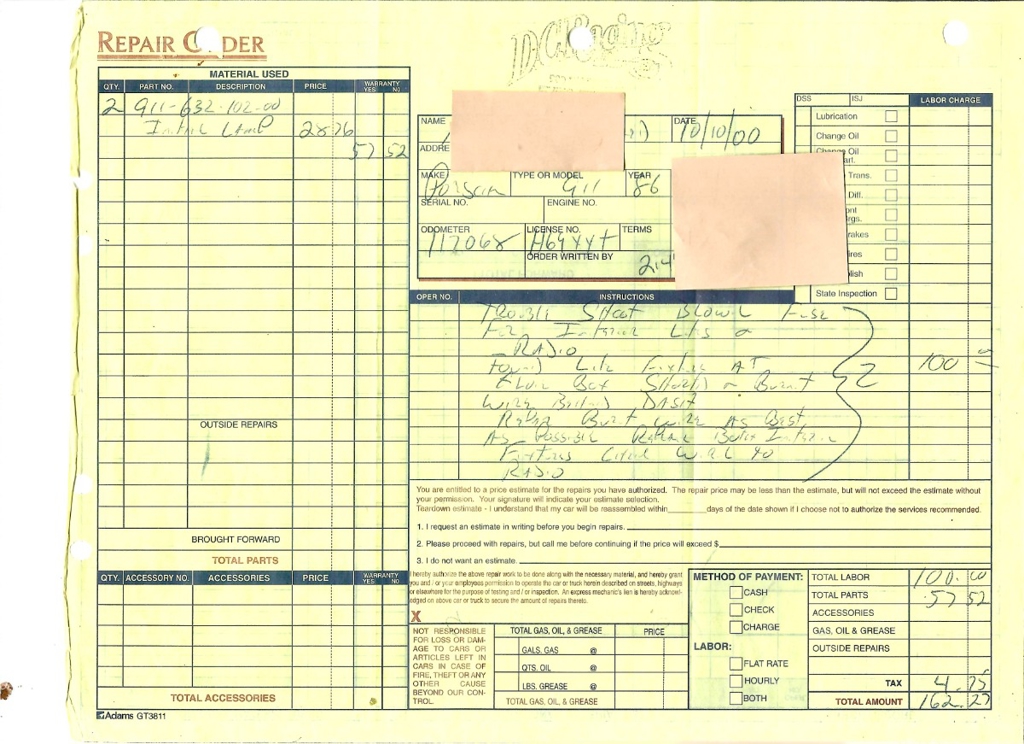 REPAIR ORDER
MATERIAL USED
QTY. PART NO. DESCRIPTION PRICE WARRANTY YES NO
2 911-632-102-00
Lamp 28 76
57 52
OUTSIDE REPAIRS
BROUGHT FORWARD
TOTAL PARTS
QTY. ACCESSORY NO. ACCESSORIES PRICE WARRANTY YES NO
TOTAL ACCESSORIES
Adams GT3811
NAME
DATE 10/10/00
ADDRE
MAKE TYPE OR MODEL 911 YEAR 86
SERIAL NO. ENGINE NO.
ODOMETER 117068 LICENSE NO. TERMS
ORDER WRITTEN BY
DSS ISJ LABOR CHARGE
Lubrication
Change Oil
Change Oil
art.
Trans.
Diff.
ont
rgs.
rakes
ires
lish
State Inspection
OPER NO. INSTRUCTIONS
Trouble Shoot Blown Fuse
For Interior Lits
RADIO
Found Lite Fixture AT
Box Shorted Burnt
Wire Behind DASH
Repair Burnt wire As Best
As Possible Replace Both Interior
Fixtures
RADIO
2
100
You are entitled to a price estimate for the repairs you have authorized. The repair price may be less than the estimate, but will not exceed the estimate without
your permission. Your signature will indicate your estimate selection.
Teardown estimate - I understand that my car will be reassembled within days of the date shown if I choose not to authorize the services recommended.
1. I request an estimate in writing before you begin repairs.
2. Please proceed with repairs, but call me before continuing if the price will exceed $
3. I do not want an estimate.
I hereby authorize the above repair work to be done along with the necessary material, and hereby grant
you and / or your employees permission to operate the car or truck herein described on streets, highways
or elsewhere for the purpose of testing and / or inspection. An express mechanic's lien is hereby acknowl-
edged on above car or truck to secure the amount of repairs thereto.
X
NOT RESPONSIBLE
FOR LOSS OR DAM-
AGE TO CARS OR
ARTICLES LEFT IN
CARS IN CASE OF
FIRE, THEFT OR ANY
OTHER CAUSE
BEYOND OUR CON-
TROL.
TOTAL GAS, OIL & GREASE PRICE
GALS. GAS @
QTS. OIL @
LBS. GREASE @
TOTAL GAS, OIL & GREASE
METHOD OF PAYMENT:
CASH
CHECK
CHARGE
LABOR:
FLAT RATE
HOURLY
BOTH
TOTAL LABOR 100.00
TOTAL PARTS 57 52
ACCESSORIES
GAS, OIL & GREASE
OUTSIDE REPAIRS
TAX 4.75
TOTAL AMOUNT 162.27